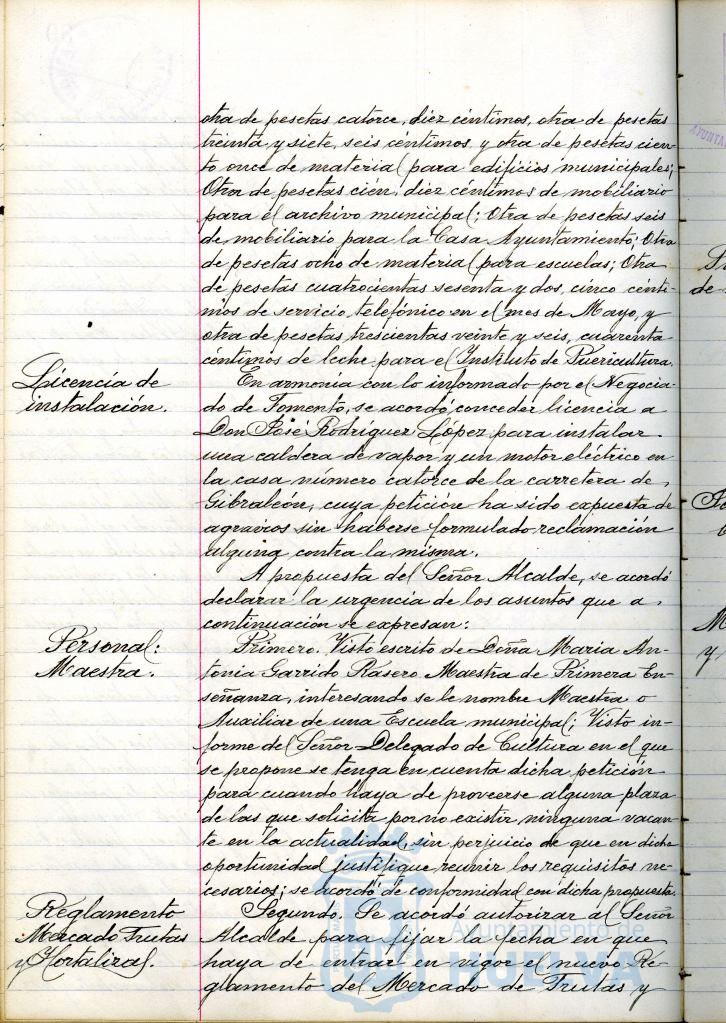 otra de pesetas catorce, diez céntimos, otra de pesetas
treinta y siete, seis céntimos y otra de pesetas cien-
to once de material para edificios municipales;
Otra de pesetas cien, diez céntimos de mobiliario
para el archivo municipal; Otra de pesetas seis
de mobiliario para la Casa Ayuntamiento; Otra
de pesetas ocho de material para escuelas; Otra
de pesetas cuatrocientas sesenta y dos, cinco cénti-
mos de servicio telefónico en el mes de Mayo, y
otra de pesetas trescientas veinte y seis, cuarenta
céntimos de leche para el Instituto de Puericultura.
Licencia de
instalación.
En armonía con lo informado por el Negocia-
do de Fomento, se acordó conceder licencia a
Don José Rodríguez López para instalar
una caldera de vapor y un motor eléctrico en
la casa número catorce de la carretera de
Gibraleón, cuya petición ha sido expuesta de
agravios sin haberse formulado reclamación
alguna contra la misma.
A propuesta del Señor Alcalde, se acordó
declarar la urgencia de los asuntos que a
continuación se expresan:
Personal:
Maestra.
Primero. Visto escrito de Doña Maria An-
tonia Garrido Rasero Maestra de Primera En-
señanza, interesando se le nombre Maestra o
Auxiliar de una Escuela municipal; Visto in-
forme del Señor Delegado de Cultura en el que
se propone se tenga en cuenta dicha petición
para cuando haya de proveerse alguna plaza
de las que solicita por no existir ninguna vacan-
te en la actualidad, sin perjuicio de que en dicha
oportunidad justifique reunir los requisitos ne-
cesarios; se acordó de conformidad con dicha propuesta.
Reglamento
Mercado Frutas
y Hortalizas.
Segundo. Se acordó autorizar al Señor
Alcalde para fijar la fecha en que
haya de entrar en vigor el nuevo Re-
glamento del Mercado de Frutas y
Ayuntamiento de
HUELVA